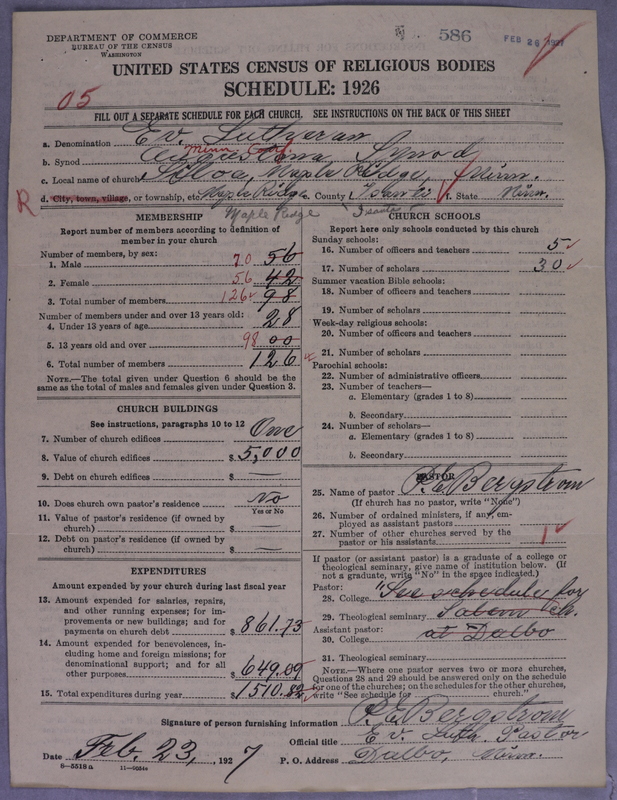 DEPARTMENT OF COMMERCE
BUREAU OF THE CENSUS
WASHINGTON
586
FEB 26 1927
UNITED STATES CENSUS OF RELIGIOUS BODIES
SCHEDULE: 1926
05
FILL OUT A SEPARATE SCHEDULE FOR EACH CHURCH. SEE INSTRUCTIONS ON THE BACK OF THIS SHEET
a. Denomination Ev. Lutheran
Minn. Conf.
b. Synod Augustana Synod
c. Local name of church Siloa, Maple Ridge, Minn.
R d. City, town, village, or township, etc. Maple Ridge e. County Isanti f. State Minn.
Maple Ridge Isanti
MEMBERSHIP
Report number of members according to definition of
member in your church
Number of members, by sex:
1. Male 70 56
2. Female 56 42
3. Total number of members 126 98
Number of members under and over 13 years old:
4. Under 13 years of age 28
5. 13 years old and over 98 00
6. Total number of members 126
NOTE.—The total given under Question 6 should be
same as the total of males and females given under Question 3.
CHURCH BUILDINGS
See instructions, paragraphs 10 to 12
7. Number of church edifices One
8. Value of church edifices $5,000
9. Debt on church edifices $ —
10. Does church own pastor's residence No
Yes or No
11. Value of pastor's residence (if owned by
church) $ —
12. Debt on pastor's residence (if owned by
church) $ —
EXPENDITURES
Amount expended by your church during last fiscal year
13. Amount expended for salaries, repairs,
and other running expenses; for im-
provements or new buildings; and for
payments on church debt $ 861.73
14. Amount expended for benevolences, in-
cluding home and foreign missions; for
denominational support; and for all
other purposes $ 649.09
15. Total expenditures during year $ 1510.82
CHURCH SCHOOLS
Report here only schools conducted by this church
Sunday schools:
16. Number of officers and teachers 5
17. Number of scholars 30
Summer vacation Bible schools:
18. Number of officers and teachers
19. Number of scholars
Week-day religious schools:
20. Number of officers and teachers
21. Number of scholars
Parochial schools:
22. Number of administrative officers
23. Number of teachers—
a. Elementary (grades 1 to 8)
b. Secondary
24. Number of scholars—
a. Elementary (grades 1 to 8)
b. Secondary
PASTOR
25. Name of pastor P.E. Bergstrom
(If church has no pastor, write "None")
26. Number of ordained ministers, if any, em-
ployed as assistant pastors
27. Number of other churches served by the
pastor or his assistants 1
If pastor (or assistant pastor) is a graduate of a college or
theological seminary, give name of institution below. (If
not a graduate, write "No" in the space indicated.)
Pastor:
28. College "See schedule for
29. Theological seminary Salem ch.
Assistant pastor:
30. College at Dalbo
31. Theological seminary
NOTE.—Where one pastor serves two or more churches,
Questions 28 and 29 should be answered only on the schedule
for one of the churches; on the schedules for the other churches,
write "See schedule for church."
Signature of person furnishing information P.E. Bergstrom
Official title Ev. Luth. Pastor
Date Feb. 23, 1927 P. O. Address Dalbo, Minn.
8—5518a 11—9034a